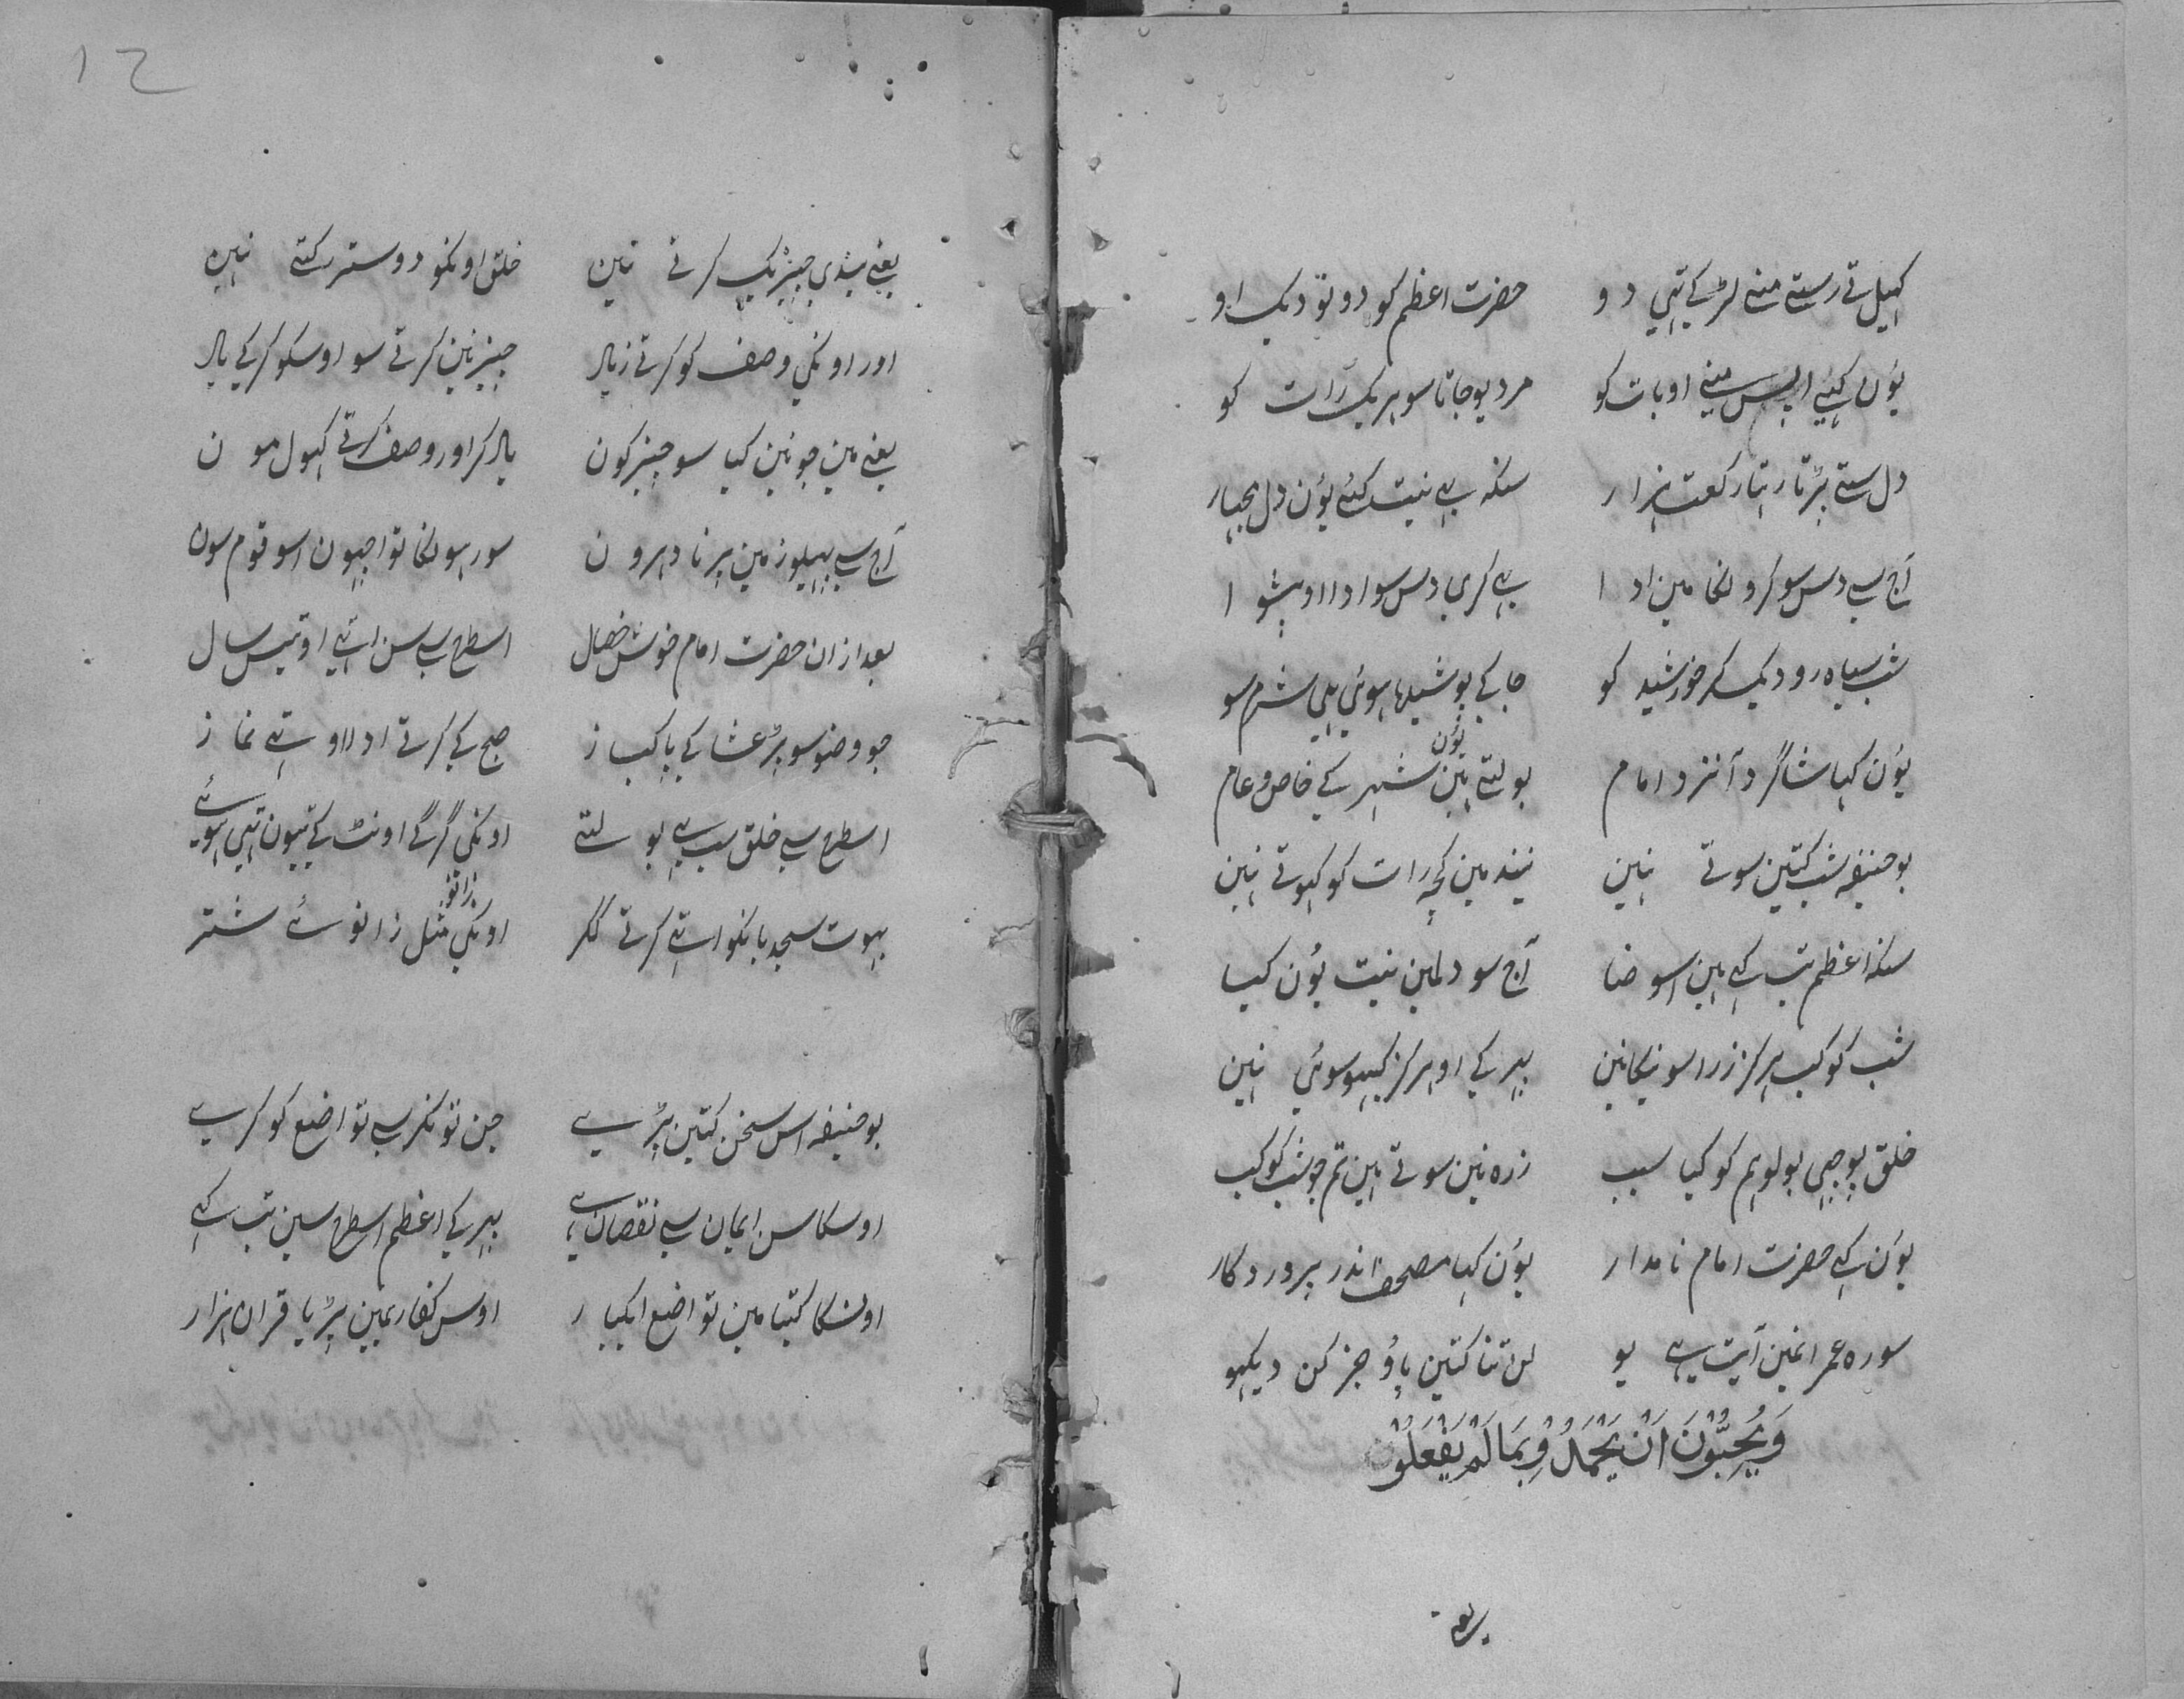 کہیل تے رستے منے لڑکے تہی دو حضرت اعظم کو دو تو دیک او
یوُں کہیے اپس مینے او بات کو مرد یو جاتا سو ہریک رات کو
دل ستے پڑتا رہتا رکعت ہزار سنکہ ہے نیت کئے یوُن دل بچہار
آج سے دس سو کرونگا مین ادا ہے کری دس سو ادا او پیشوا
شب سیاہ رو دیک کر خورشید کو جا کے پوشیدا ہوئی ہلی شرم سو
یوُن کہا شاگرد آ نزد امام بولتے ہین یوُن شہر کے خاص و عام
بو حنیفہ شب کتین سوتے نہین نیند مین کچہ رات کو کہوتے نہین
سنکہ اعظم تب کہے ہین اسو ضا آج سو دلمین نیت یوُن کیا
شب کو کب ہرگز زرا سونیکا نین بہر کے او ہرگز کبہو سوئی نہین
خلق پوچہی بولو ہم کو کیا سبب زرہ نین سوتے ہین تم جو شب کو کب
یوُن کہے حضرت امام نامدار یوُن کہا مصحف اندر پروردکار
سورہ عمرانمین آیت ہے یو لن تنا کتین پاؤ جز کن دیکہو
وَيُحِبُّوْنَ اَنْ يُحْمَدُوْ بِمَا لَمْ يَفْعَلُوْ
یعنے
12
یعنے بندی چیز یک کرتے نین خلق اونکو دوستر رکتے نہین
اور اونکی وصف کو کرتے زیاد چیز نین کرتے سو اوسکو کرکے یاد
یعنے مین جو نین کیا سو چیز کون یاد کر اور وصف کرتے کہول مون
آج سے پہلو زمین پر نا دہرون سو رہونگا تو اچہون اسو قوم سون
بعد ازان حضرت امام خوش خصال اسطرح سے سن اتہے او تیس سال
جو وضو سو پڑ عشا کے پاکباز صبح کی کرتے ادا او تہے نماز
اسطرح سے خلق سب ہے بولتے اونکی گرگے اونٹ کے تیون تہی ہوئے
بہوت سجدیانکو اتہے کرتے مگر اونکی زانو مثل زانوئے شتر
بو حنیفہ اس سخن کتین پڑہے جن تونکر سے تواضع کو کرے
اوسکا سن ایمان سے نقصان ہے بہر کے اعظم اسطرح سین تب کہے
اونکا کتیا مین تواضع ایکبار اوس کفاریمین پڑیا قران ہزار